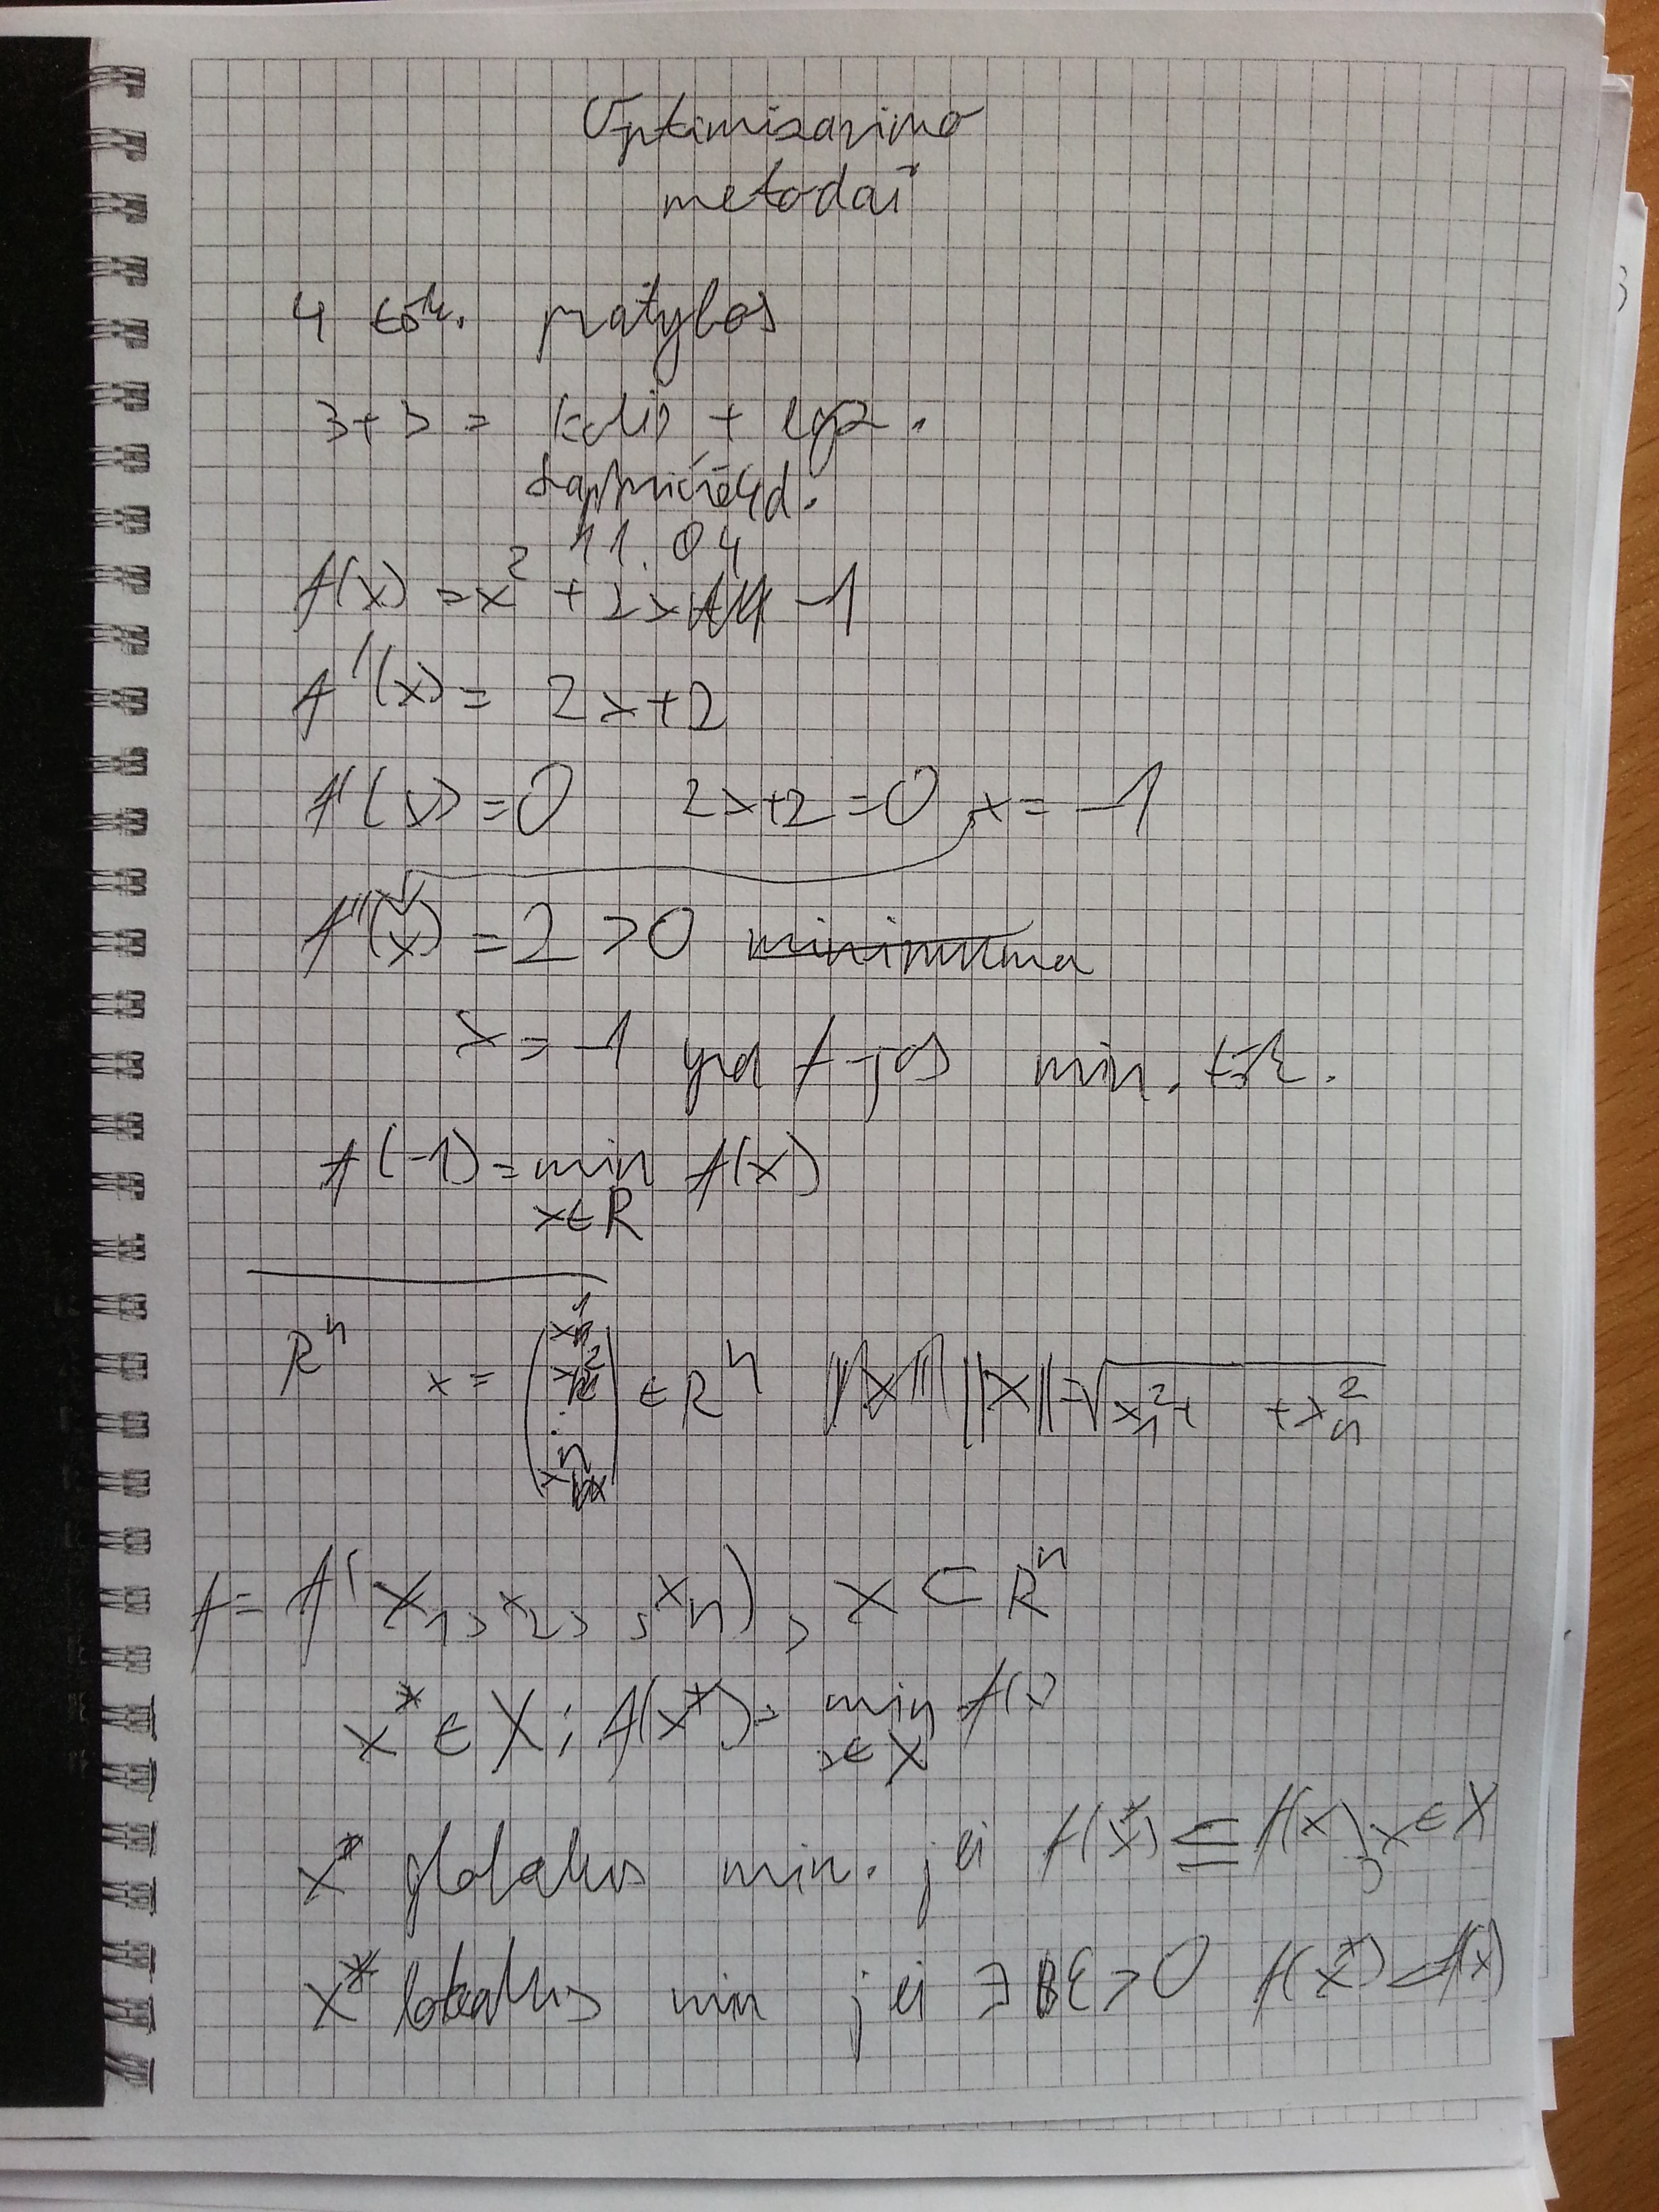 Optimizavimo
metodai
4 tšk. pratybos
3+3 = kolis + egz.
lapkričio 4 d.
11.04
f(x) = x² + 2x - 1
f'(x) = 2x+2
f'(x) = 0 2x+2=0, x = -1
f''(x) = 2 > 0 minimuma
x = -1 yra f-jos min. tšk.
f(-1) = min f(x)
x∈R
Rⁿ x = (x¹ x² ⋮ xⁿ) ∈ Rⁿ ||x|| = √x₁²+ +xₙ²
f = f(x₁, x₂, , xₙ), X ⊂ Rⁿ
x* ∈ X; f(x*) = min f(x)
x∈X
x* globalus min. jei f(x*) ≤ f(x), x∈X
x* lokalus min jei ∃ ε>0 f(x*) ≤ f(x)